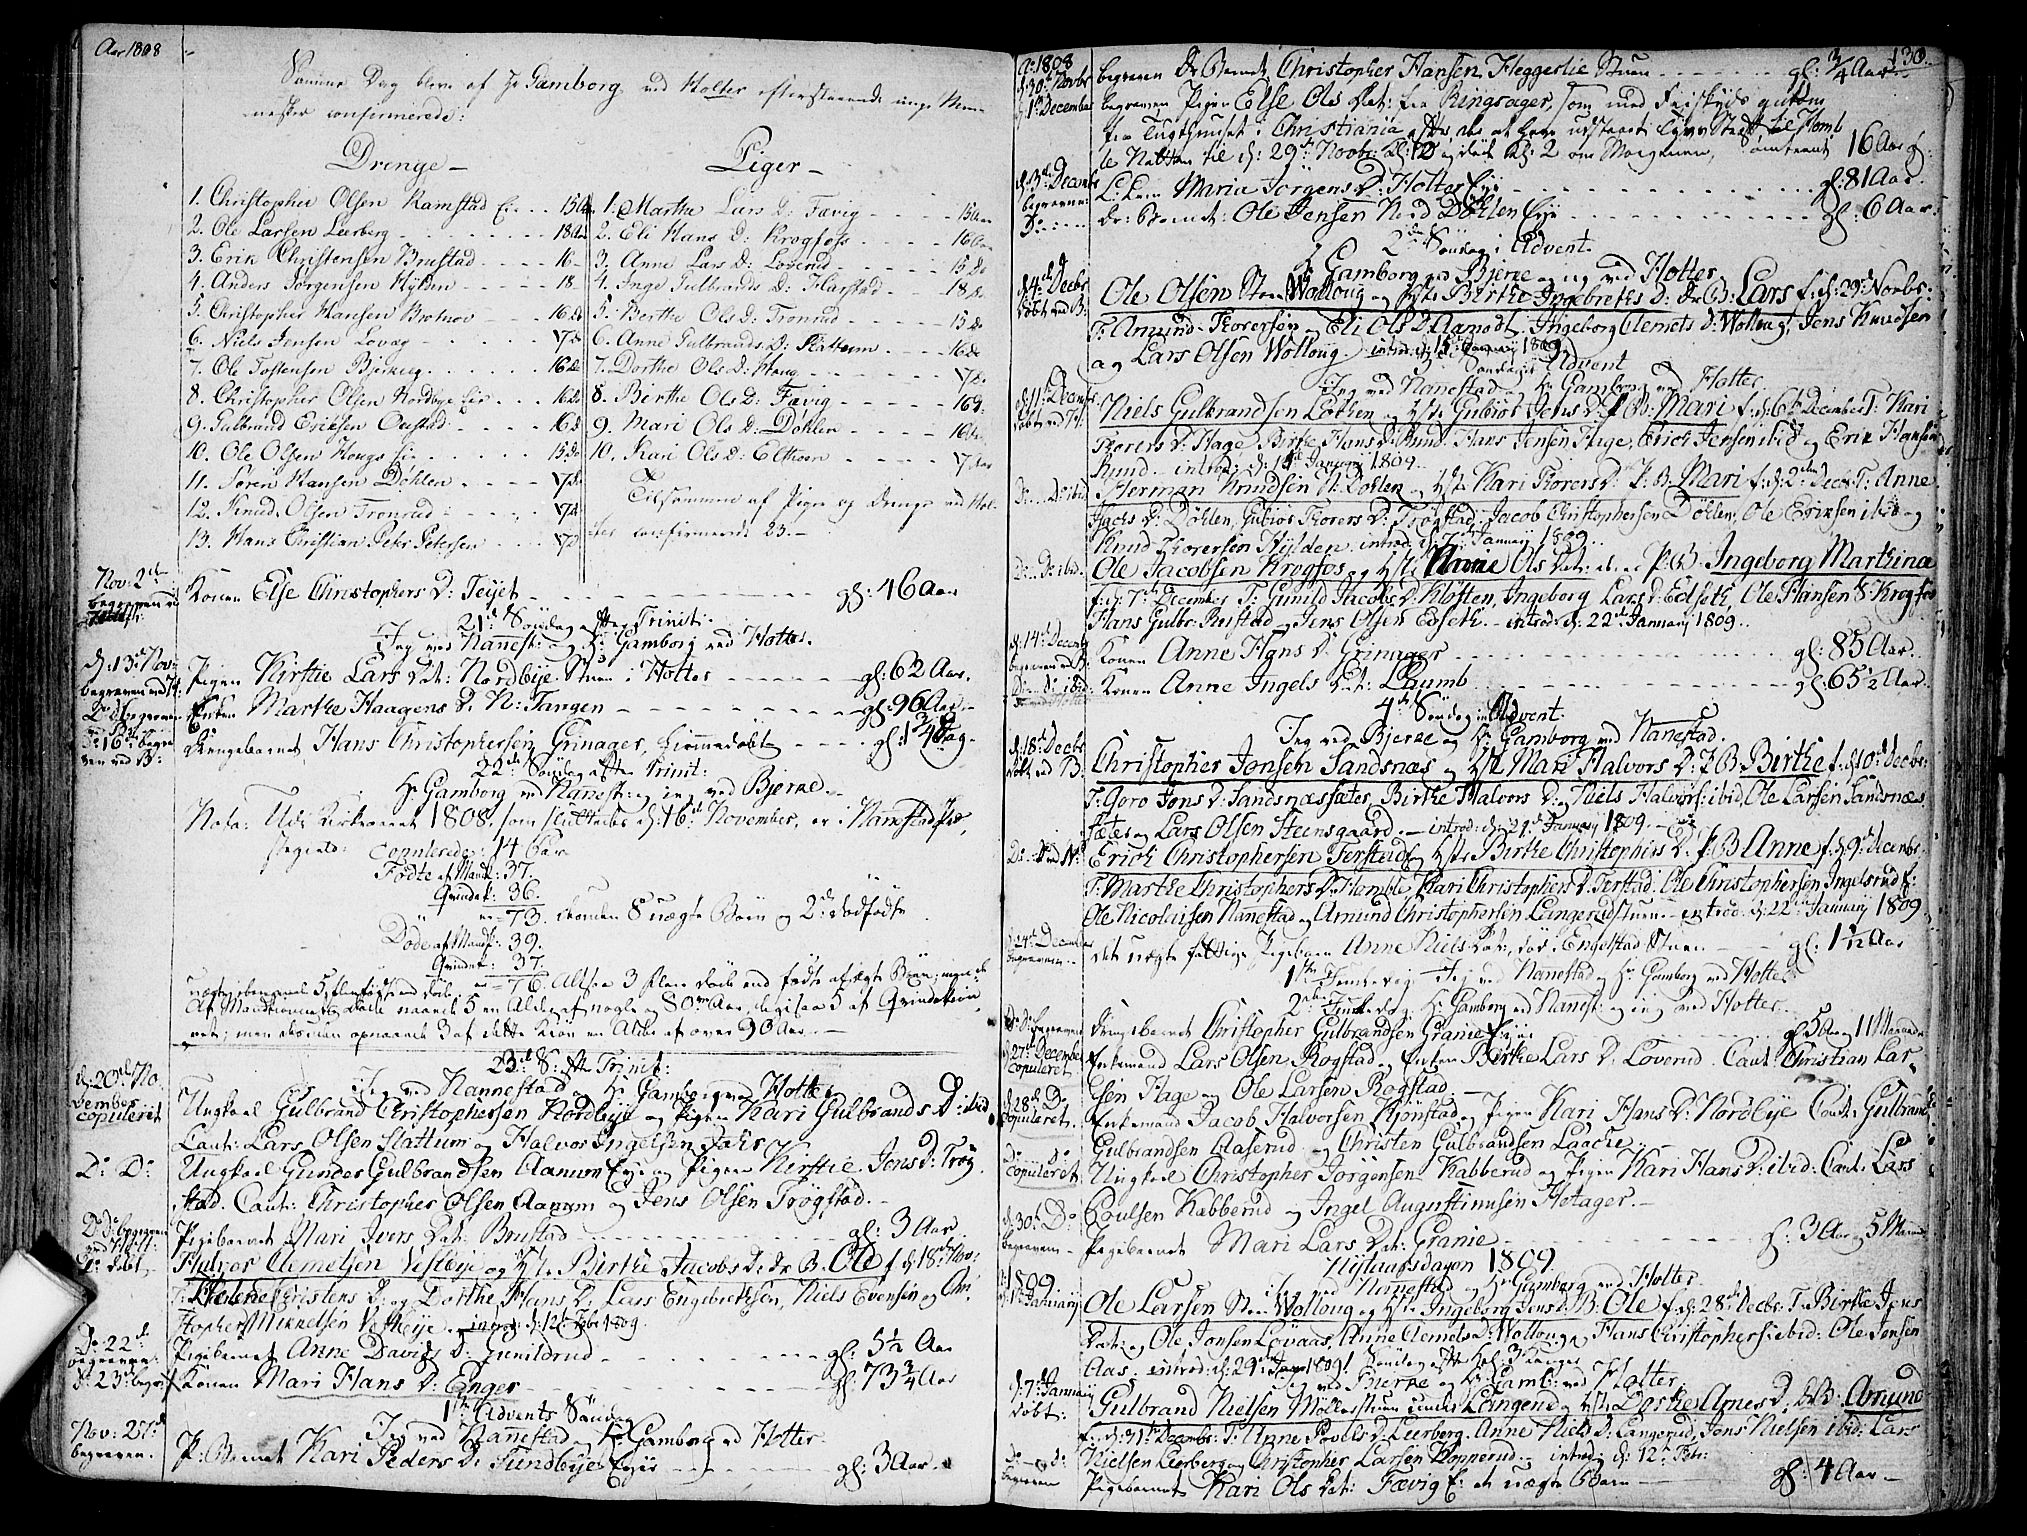 Aar 1808
Samme Dag bleve af Hr Gamborg ved Holter efterstaaende unge Men-
nesker confirmerede:
Drenge —
1. Christopher Olsen Ramstad Eie 15 Aar
2. Ole Larsen Leerberg 18 Aar
3. Erik Christensen Brustad 16 —
4. Anders Jørgensen Hylden 18 —
5. Christopher Hansen Brotnov 16 do
6. Niels Jensen Lovag 17 do
7. Ole Tostensen Bjerkeg 16 do
8. Christopher Olsen Nordbye Eie 16 do
9. Gulbrand Eriksen Ouestad 16 d
10. Ole Olsen Hougs Eie 15 do
11. Søren Hansen Døhlen 17 do
12. Knud Olsen Tronrud 17 d
13. Hans Christian Petr Petersen 17 d
Piger —
1. Marthe Lars D: Fævig 15 Aar
2. Eli Hans D: Krogfoss 16 Aar
3. Anne Lars D: Loverud 15 do
4. Inge Gulbrands D: Harstad 18 do
5. Berthe Ols D: Tronrud 15 do
6. Anne Gulbrands D: Slattum 16 do
7. Dorthe Ols D: Houg 17 do
8. Birthe Ols D: Fævig 16 d:
9. Mari Ols D: Døhlen 16 Aar
10. Kari Ols D: Elstoen 17 Aar
Tilsammen af Piger og Drenge ved Hol-
ter confirmerede 23. —
Nov: 2de begraven Konen Else Christophers D: Teyet gl: 46 Aar
21de Søndag efter Trinit:
Jeg ved Nanest: og Hr Gamborg ved Holter.
d: 13de Nov: begraven ved H: Pigen Kirstie Lars Dat: Nordbye Stuen i Holter gl: 62 Aar.
Do begraven Enken Marthe Haagens D: N: Tangen gl: 96 Aar. —
d: 16de begraven ved B: Drengebarnet Hans Christophersen Grinager, hiemmedøbt gl: 1 3/4 Dag —
22de Søndag efter Trinit:
Hr Gamborg ved Nanest: og jeg ved Bjerke. —
Nota: Udi Kirkeaaret 1808, som sluttedes d: 16de November, er i Nannestad Præ-
stegield: Copulerede: 14 Par
Fødte af Mandk: 37.
Qvindek: 36.
73. iberegnet 8 uægte Børn og 2de dødfødte
Døde af Mandk: 39.
Qvindek: 37.
76. Altsaa 3 flere døde end fødte af ægte Børn; men de
uægte iberegnede 5 flere fødte end døde
Af Mandkiønnets Døde naaede 5 en Alder af nogle og 80 Aar, ligesaa 5 af Qvindekiøn-
net; men desuden opnaaede 3 af dette Kiøn en Alder af over 90 Aar. —
23de S: efter Trinit:
Jeg ved Nannestad og Hr Gamborg ved Holter
d: 20de November copuleret Ungkarl Gulbrand Christophersen Nordbye og Pigen Kari Gulbrands D: ibid
Caut: Lars Olsen Slattum og Halvor Ingelsen Dahl
Do Do Ungkarl Gunder Gulbrandsen Aamum Eye og Pigen Kirstie Jons D: Trøg-
stad. Caut: Christopher Olsen Aamum og Jens Olsen Trøgstad. —
Do Do begraven ved H: Pigebarnet Mari Ivers Dat: Brustad gl: 3 Aar
Do døbt Halvor Clemetsen Vestbye og Hste Birthe Jacobs D: dr B: Ole f: d: 18de Nov:
T: Helene Christens D: og Dorthe Hans D: Lars Engebrethsen, Niels Evensen og Chri-
stopher Mikkelsen Vestbye. introd: d: 12te Febr 1809.
Do 22de begraven Pigebarnet Anne Davids D: Gunildrud gl: 5½ Aar
Do 23de begraven Konen Mari Hans D: Enger gl: 73 3/4 Aar
1ste Advents Søndag
Jeg ved Nanestad Hr Gamborg ved Holter.
Nov: 27de begraven. P: Barnet Kari Peders D: Sundbye Eyer gl: 3 Aar.
130.
Ao 1808
d: 30te Novbr begraven Dr Barnet Christopher Hansen Heggerlie Stuen gl: 3/4 Aar
d: 1ste December begraven Pigen Else Ols Dat: fra Ringsager, som med Friskyds
fra Tugthuset i Christiania efter der at have udstaaet sin Straf
Natten til d: 29de Novbr døde Kl: 2 om Morgenen, omtrent 16 Aar gl:
d: 3de Decembr begraven: Enken Maria Jørgens D: Holter Eye gl: 81 Aar.
Do: Dr: Barnet: Ole Jensen Nord Døhlen Eye gl: 6 Aar.
2den Søndag i Advent.
Hr Gamborg ved Bjerke og jeg ved Holter
d: 4de Decbr døbt ved B: Ole Olsen Stor Wolloug og Hste Birthe Ingebreths D: Dr B: Lars f: d: 29de Novbr:
T: Amund Thorersen og Eli Ols D: Aamodt, Ingeborg Clemets D: Wolloug, Jens Knudsen
og Lars Olsen Wolloug. introd: d: 15de January 1809
3de Søndag i Advent
Jeg ved Nanestad Hr Gamborg ved Holter.
d: 11te Decembr døbt ved H: Niels Gulbrandsen Løchen og Hste Gubiør Jens D: P: B: Mari f: d: 6te December T: Kari
Thorers D: Hage, Birthe Hans D: Rund, Hans Jensen Hage, Erich Jensen ibid og Erik Hansen
Rund. introd: d: 15de January 1809.
Do: Do ibid: Herman Knudsen N: Døhlen og Hste Kari Thorers D: P: B: Mari f: d: 2den Decbr T: Anne
Jachs D: Døhlen, Gubiør Thorers D: Trøgstad, Jacob Christophersen Døhlen, Ole Eriksen ibid og
Knud Thorersen Hylden. introd: d: 7de January 1809.
Do: Do ibid. Ole Jacobsen Krogfos og Hste Anne Ols Dat: P: B: Ingeborg Marthinæ
f: d: 7de December T: Gunild Jacobs D: Kløften, Ingeborg Lars D: Edseth, Ole Hansen S: Krogfos
Hans Gulbr: Brustad og Jens Olsen Edseth. introd: d: 22de January 1809.
d: 14de Decembr begraven ved B: Konen Anne Hans D: Grinager gl: 85 Aar.
Do: Do ibid Konen Anne Ingels Dat: Lhumb gl: 65½ Aar.
4de Søndag in Advent.
Jeg ved Bjerke og Hr Gamborg ved Nanestad.
d: 18de Decbr døbt ved B: Christopher Jonsen Sandsnæs og Hste Mari Halvors D: P: B: Birthe f: d: 10de Decbr:
T: Goro Jons D: Sandsnæssæter, Birthe Halvors D: Niels Halvors: ibid, Ole Larsen Sandsnæs
sæter og Lars Olsen Steensgaard. — introd: d: 29de January 1809. —
Do: ved N: Erich Christophersen Terstad og Hste Birthe Christophers D: P: B: Anne f: d: 9de Decembr.
T: Marthe Christophers D: Homble, Kari Christophers D: Terstad, Ole Christophersen Ingelsrud
Ole Nicolaisen Nanestad og Amund Christophersen Langerudstuen. introd: d: 22de January 1809
d: 24de December begraven det uægte fattige Pigebarn Anne Niels Dat: Engelstad Stuen gl: 1½ Aar
1ste Juuledag Jeg ved Nanestad og Hr Gamborg ved Holter
2den Juuledag Hr Gamborg ved Nanest: og jeg ved Holter.
Do: Do: begraven Drengebarnet Christopher Gulbrandsen Granie Eye gl: 5 Aar 11 Maaneder
d: 27de December copuleret Enkemand Lars Olsen Rogstad og Enken Birthe Lars D: Loverud. Caut: Christian Lar-
sen Hage og Ole Larsen Rogstad —
d: 28de Do copuleret. Enkemand Jacob Halvorsen Kjonstad og Pigen Kari Hans D: Nordbye Caut: Gulbrand
Gulbrandsen Aaserud og Christen Gulbrandsen Laache. —
Do Do copuleret Ungkarl Christopher Jørgensen Kabberud og Pigen Kari Hans D: ibid: Caut: Lars
Poulsen Kabberud og Ingel Augustinusen Hotager. —
d: 30te Do begraven Pigebarnet Mari Lars Dat: Granie gl: 3 Aar 5 Maan:
Nytaarsdagen 1809.
Jeg ved Nanestad og Hr Gamborg ved Holter.
Ao 1809 d: 1ste January Ole Larsen Stor Wolloug og Hste Ingeborg Jons D: B: Ole f: d: 28de Decbr: T: Birthe Jens
Dat: og Ole Jonsen Lovaas, Anne Clemets D: Wolloug, Hans Christophersen ibid: Ole Jensen
Aas. introd: d: 29de Jan: 1809.
Søndag efter Hel: 3 Konger
Jeg ved Bjerke og Hr Gamb: ved Holter.
d: 7de January døbt: Gulbrand Nielsen Møllerstuen under Langerud og Hste Dorthe Arnes D: Dr B: Amund
f: d: 31te Decembr: T: Anne Povels D: Leerberg, Anne Niels D: Langerud, Jens Nielsen ibid: Lars
Nielsen Leerberg og Christopher Larsen Kopperud. introd: d: 12te Febr:
Do — do: begraven Pigebarnet Kari Ols Dat: Fævig E: et uægte Barn gl: 4 Aar —